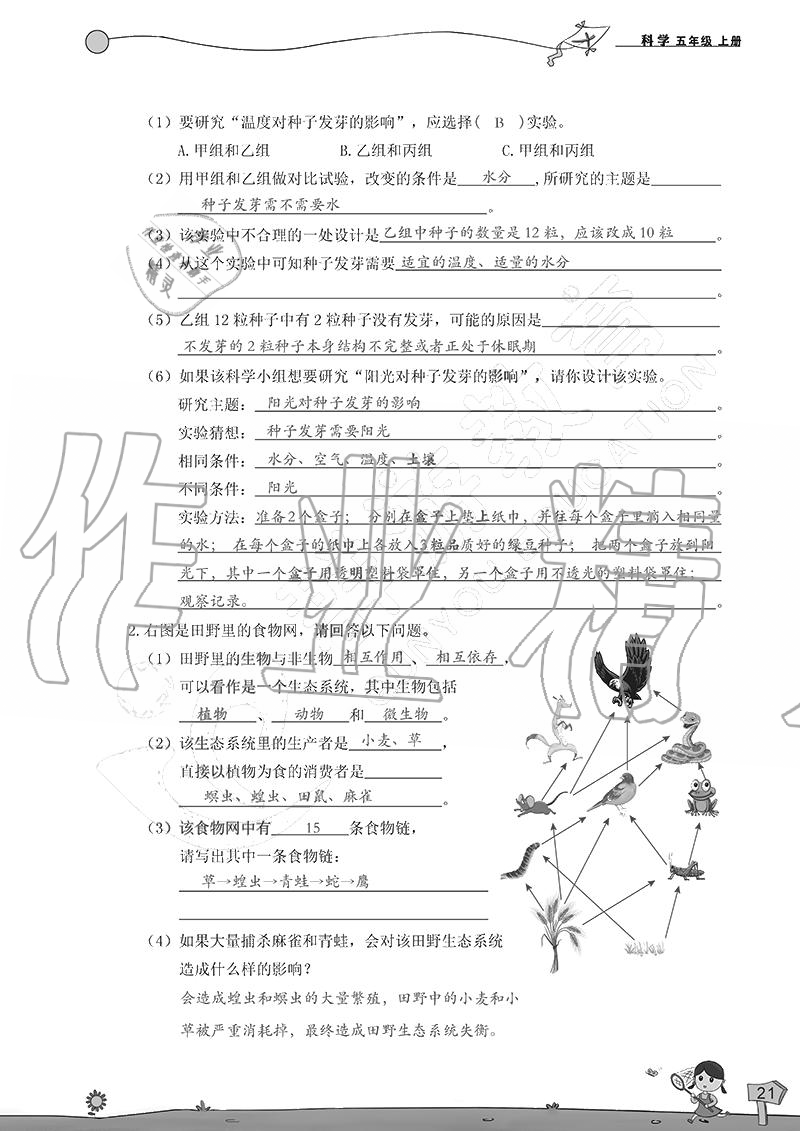 科学 五年级 上册
（1）要研究“温度对种子发芽的影响”，应选择( B )实验。
A.甲组和乙组 B.乙组和丙组 C.甲组和丙组
（2）用甲组和乙组做对比试验，改变的条件是 水分 ,所研究的主题是
种子发芽需不需要水 。
（3）该实验中不合理的一处设计是 乙组中种子的数量是12粒，应该改成10粒 。
（4）从这个实验中可知种子发芽需要 适宜的温度、适量的水分
。
（5）乙组12粒种子中有2粒种子没有发芽，可能的原因是
不发芽的2粒种子本身结构不完整或者正处于休眠期 。
（6）如果该科学小组想要研究“阳光对种子发芽的影响”，请你设计该实验。
研究主题： 阳光对种子发芽的影响 。
实验猜想： 种子发芽需要阳光 。
相同条件： 水分、空气、温度、土壤 。
不同条件： 阳光 。
实验方法：准备2个盒子； 分别在盒子上垫上纸巾，并往每个盒子里滴入相同量
的水； 在每个盒子的纸巾上各放入3粒品质好的绿豆种子； 把两个盒子放到阳
光下，其中一个盒子用透明塑料袋罩住，另一个盒子用不透光的塑料袋罩住；
观察记录。 。
2.右图是田野里的食物网，请回答以下问题。
（1）田野里的生物与非生物 相互作用 、 相互依存 ，
可以看作是一个生态系统，其中生物包括
植物 、 动物 和 微生物 。
（2）该生态系统里的生产者是 小麦、草 ，
直接以植物为食的消费者是
螟虫、蝗虫、田鼠、麻雀 。
（3）该食物网中有 15 条食物链，
请写出其中一条食物链：
草→蝗虫→青蛙→蛇→鹰
（4）如果大量捕杀麻雀和青蛙，会对该田野生态系统
造成什么样的影响？
会造成蝗虫和螟虫的大量繁殖，田野中的小麦和小
草被严重消耗掉，最终造成田野生态系统失衡。
21